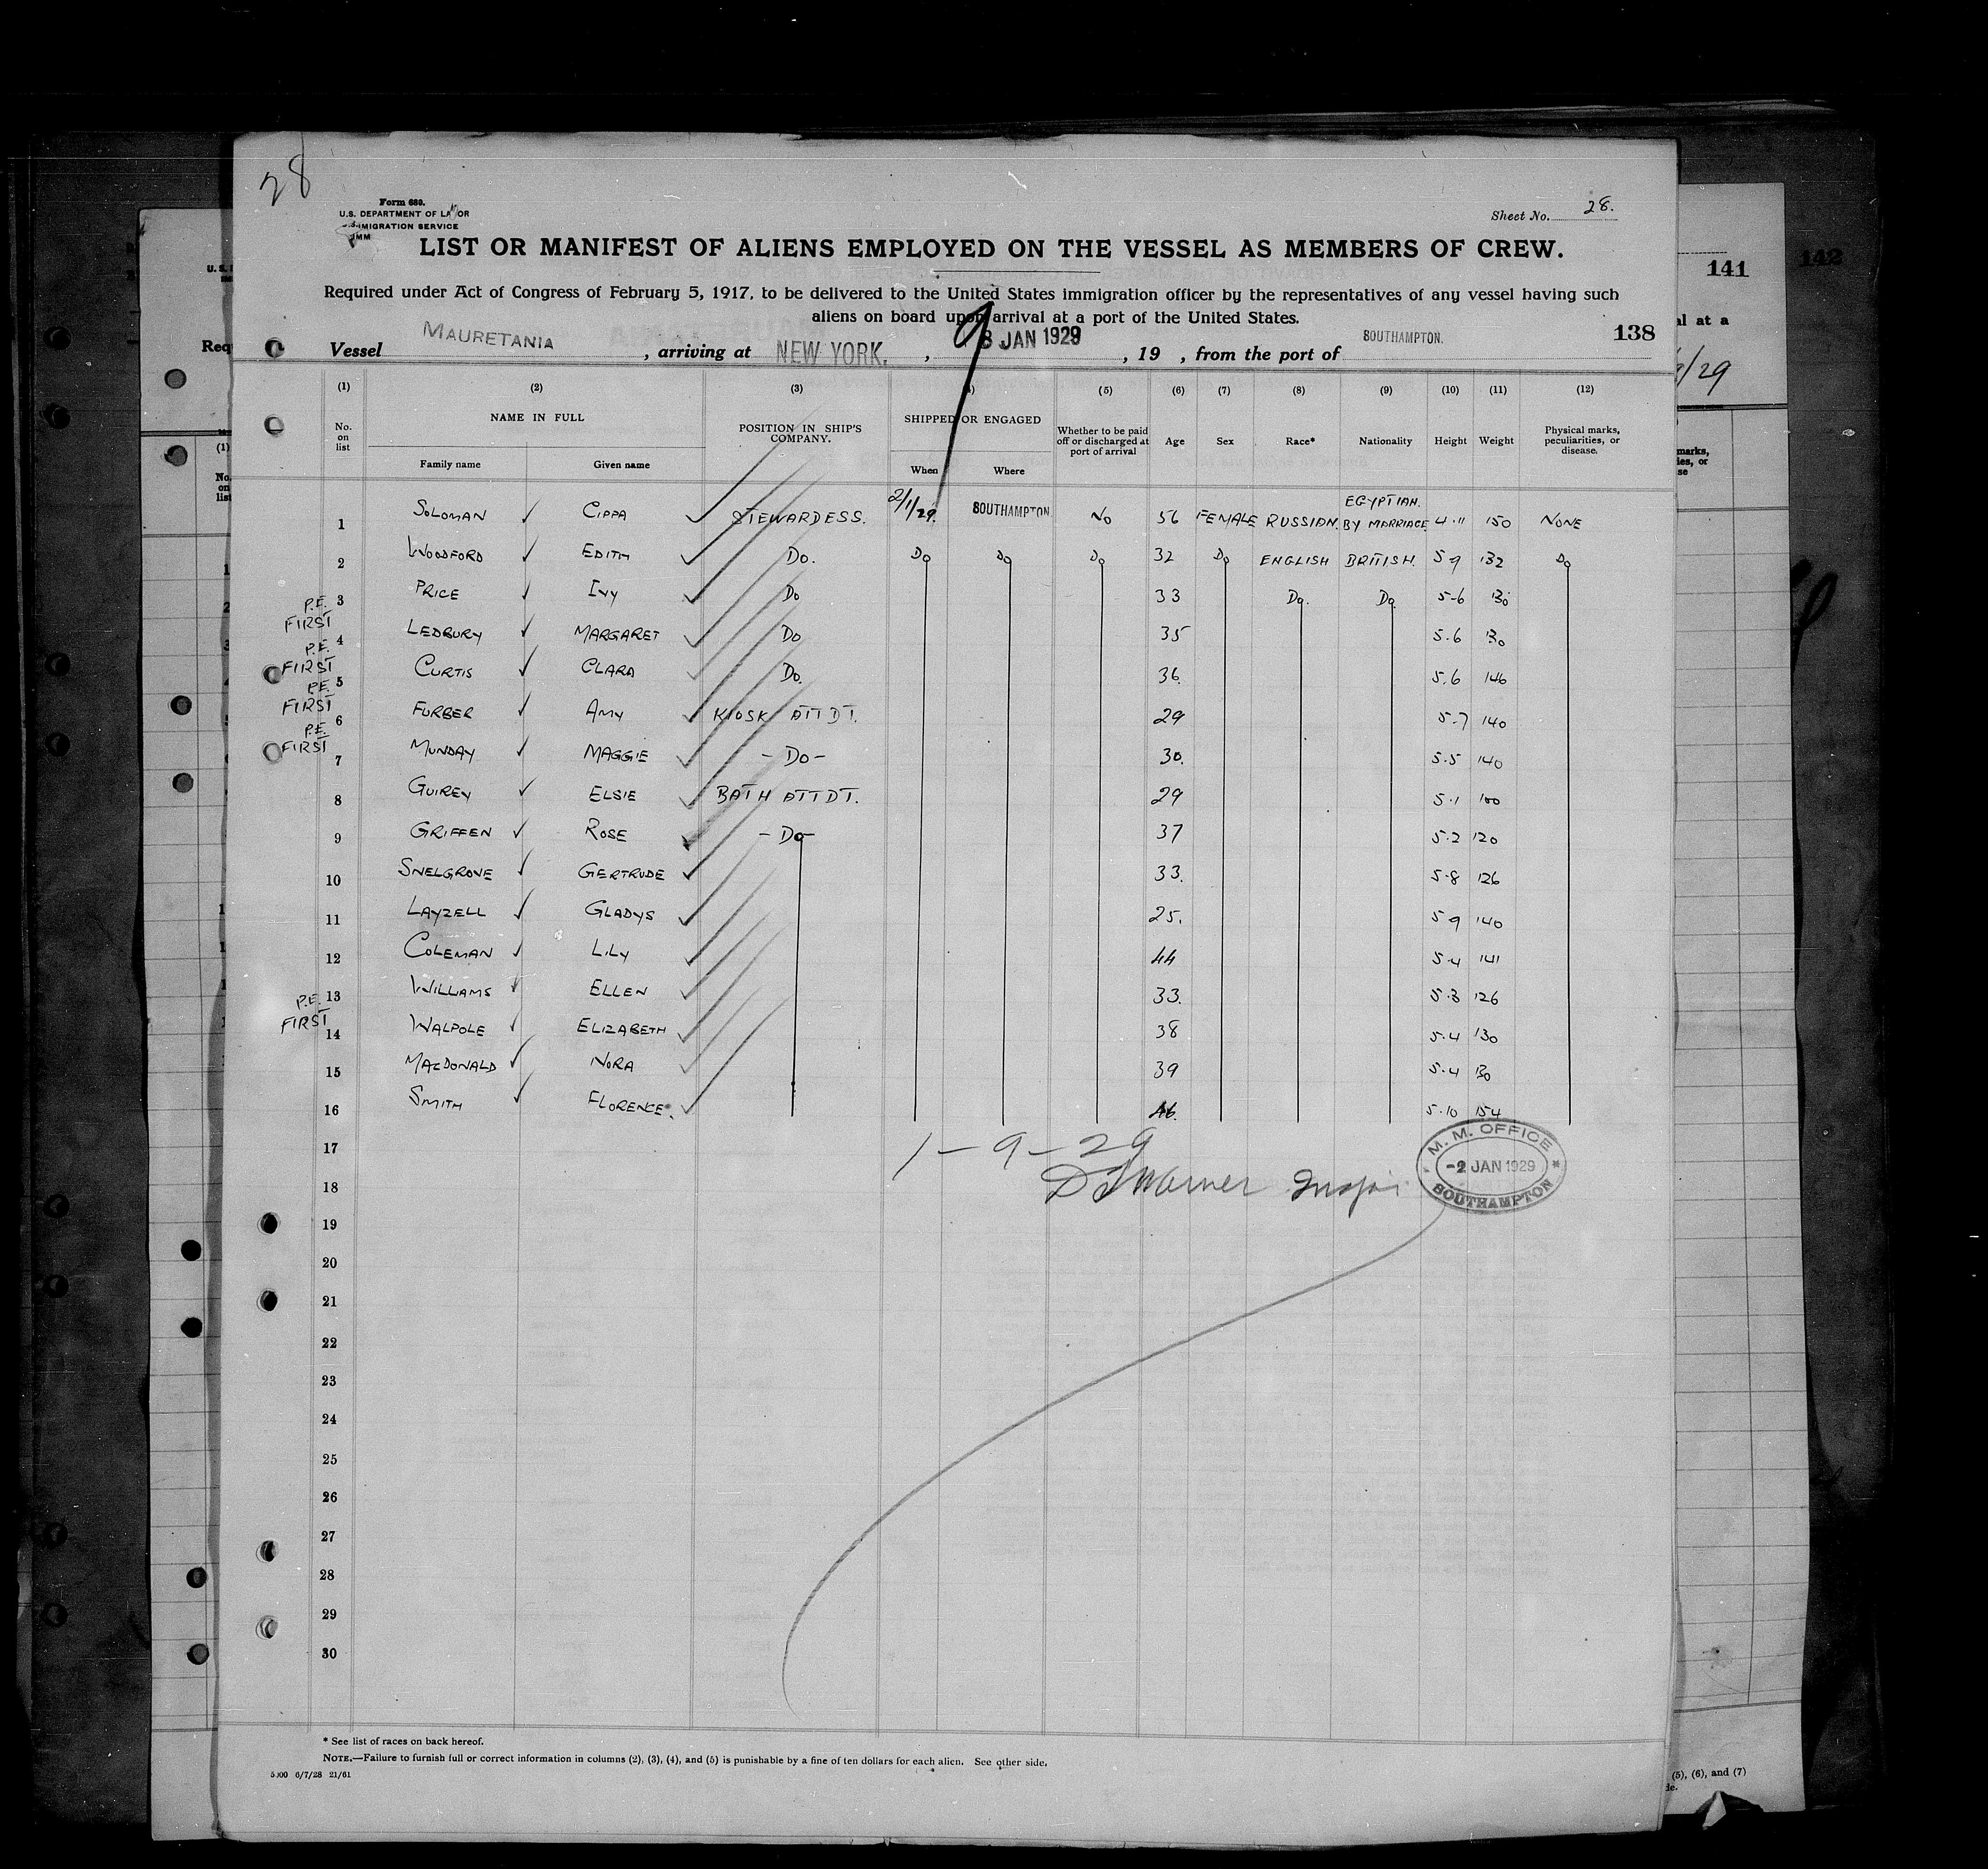 28
Form 680.
U.S. DEPARTMENT OF LABOR
IMMIGRATION SERVICE
Sheet No. 28.
LIST OR MANIFEST OF ALIENS EMPLOYED ON THE VESSEL AS MEMBERS OF CREW.
Required under Act of Congress of February 5, 1917, to be delivered to the United States immigration officer by the representatives of any vessel having such
aliens on board upon arrival at a port of the United States.
138
Vessel MAURETANIA, arriving at NEW YORK., 8 JAN 1929, 19 , from the port of SOUTHAMPTON.
(1) (2) (3) (5) (6) (7) (8) (9) (10) (11) (12)
No. on list NAME IN FULL Family name Given name POSITION IN SHIP'S COMPANY. SHIPPED OR ENGAGED When Where Whether to be paid off or discharged at port of arrival Age Sex Race* Nationality Height Weight Physical marks, peculiarities, or disease.
1 SOLOMAN CIPPA STEWARDESS. 2/1/29. SOUTHAMPTON No 56 FEMALE RUSSIAN. EGYPTIAN. BY MARRIAGE 4.11 150 NONE
2 WOODFORD EDITH Do. Do Do Do 32 Do ENGLISH BRITISH. 5 9 132 Do
3 PRICE IVY Do 33 Do. Do 5-6 130
P.E. FIRST 4 LEDBURY MARGARET Do 35 5.6 130
P.E. FIRST 5 CURTIS CLARA Do. 36. 5.6 146
P.E. FIRST 6 FURBER AMY KIOSK ATTDT. 29 5-7 140
P.E. FIRST 7 MUNDAY MAGGIE - Do - 30. 5.5 140
8 GUIREY ELSIE BATH ATTDT. 29 5.1 100
9 GRIFFEN ROSE - Do - 37 5.2 120
10 SNELGROVE GERTRUDE 33. 5.8 126
11 LAYZELL GLADYS 25. 5 9 140
12 COLEMAN LILY 44 5.4 141
13 WILLIAMS ELLEN 33. 5.3 126
P.E. FIRST 14 WALPOLE ELIZABETH 38 5.4 130
15 MACDONALD NORA 39 5.4 130
16 SMITH FLORENCE. 46. 5.10 154
17
1-9-29
18
Warner
M. M. OFFICE
-2 JAN 1929
SOUTHAMPTON
19
20
21
22
23
24
25
26
27
28
29
30
* See list of races on back hereof.
NOTE.—Failure to furnish full or correct information in columns (2), (3), (4), and (5) is punishable by a fine of ten dollars for each alien. See other side.
6/7/28 21/61
141
142
(5), (6), and (7)